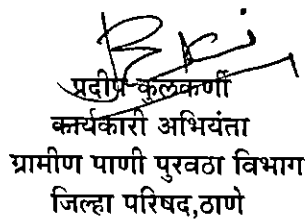 प्रदीप कुलकर्णी
कार्यकारी अभियंता
ग्रामीण पाणी पुरवठा विभाग
जिल्हा परिषद,ठाणे